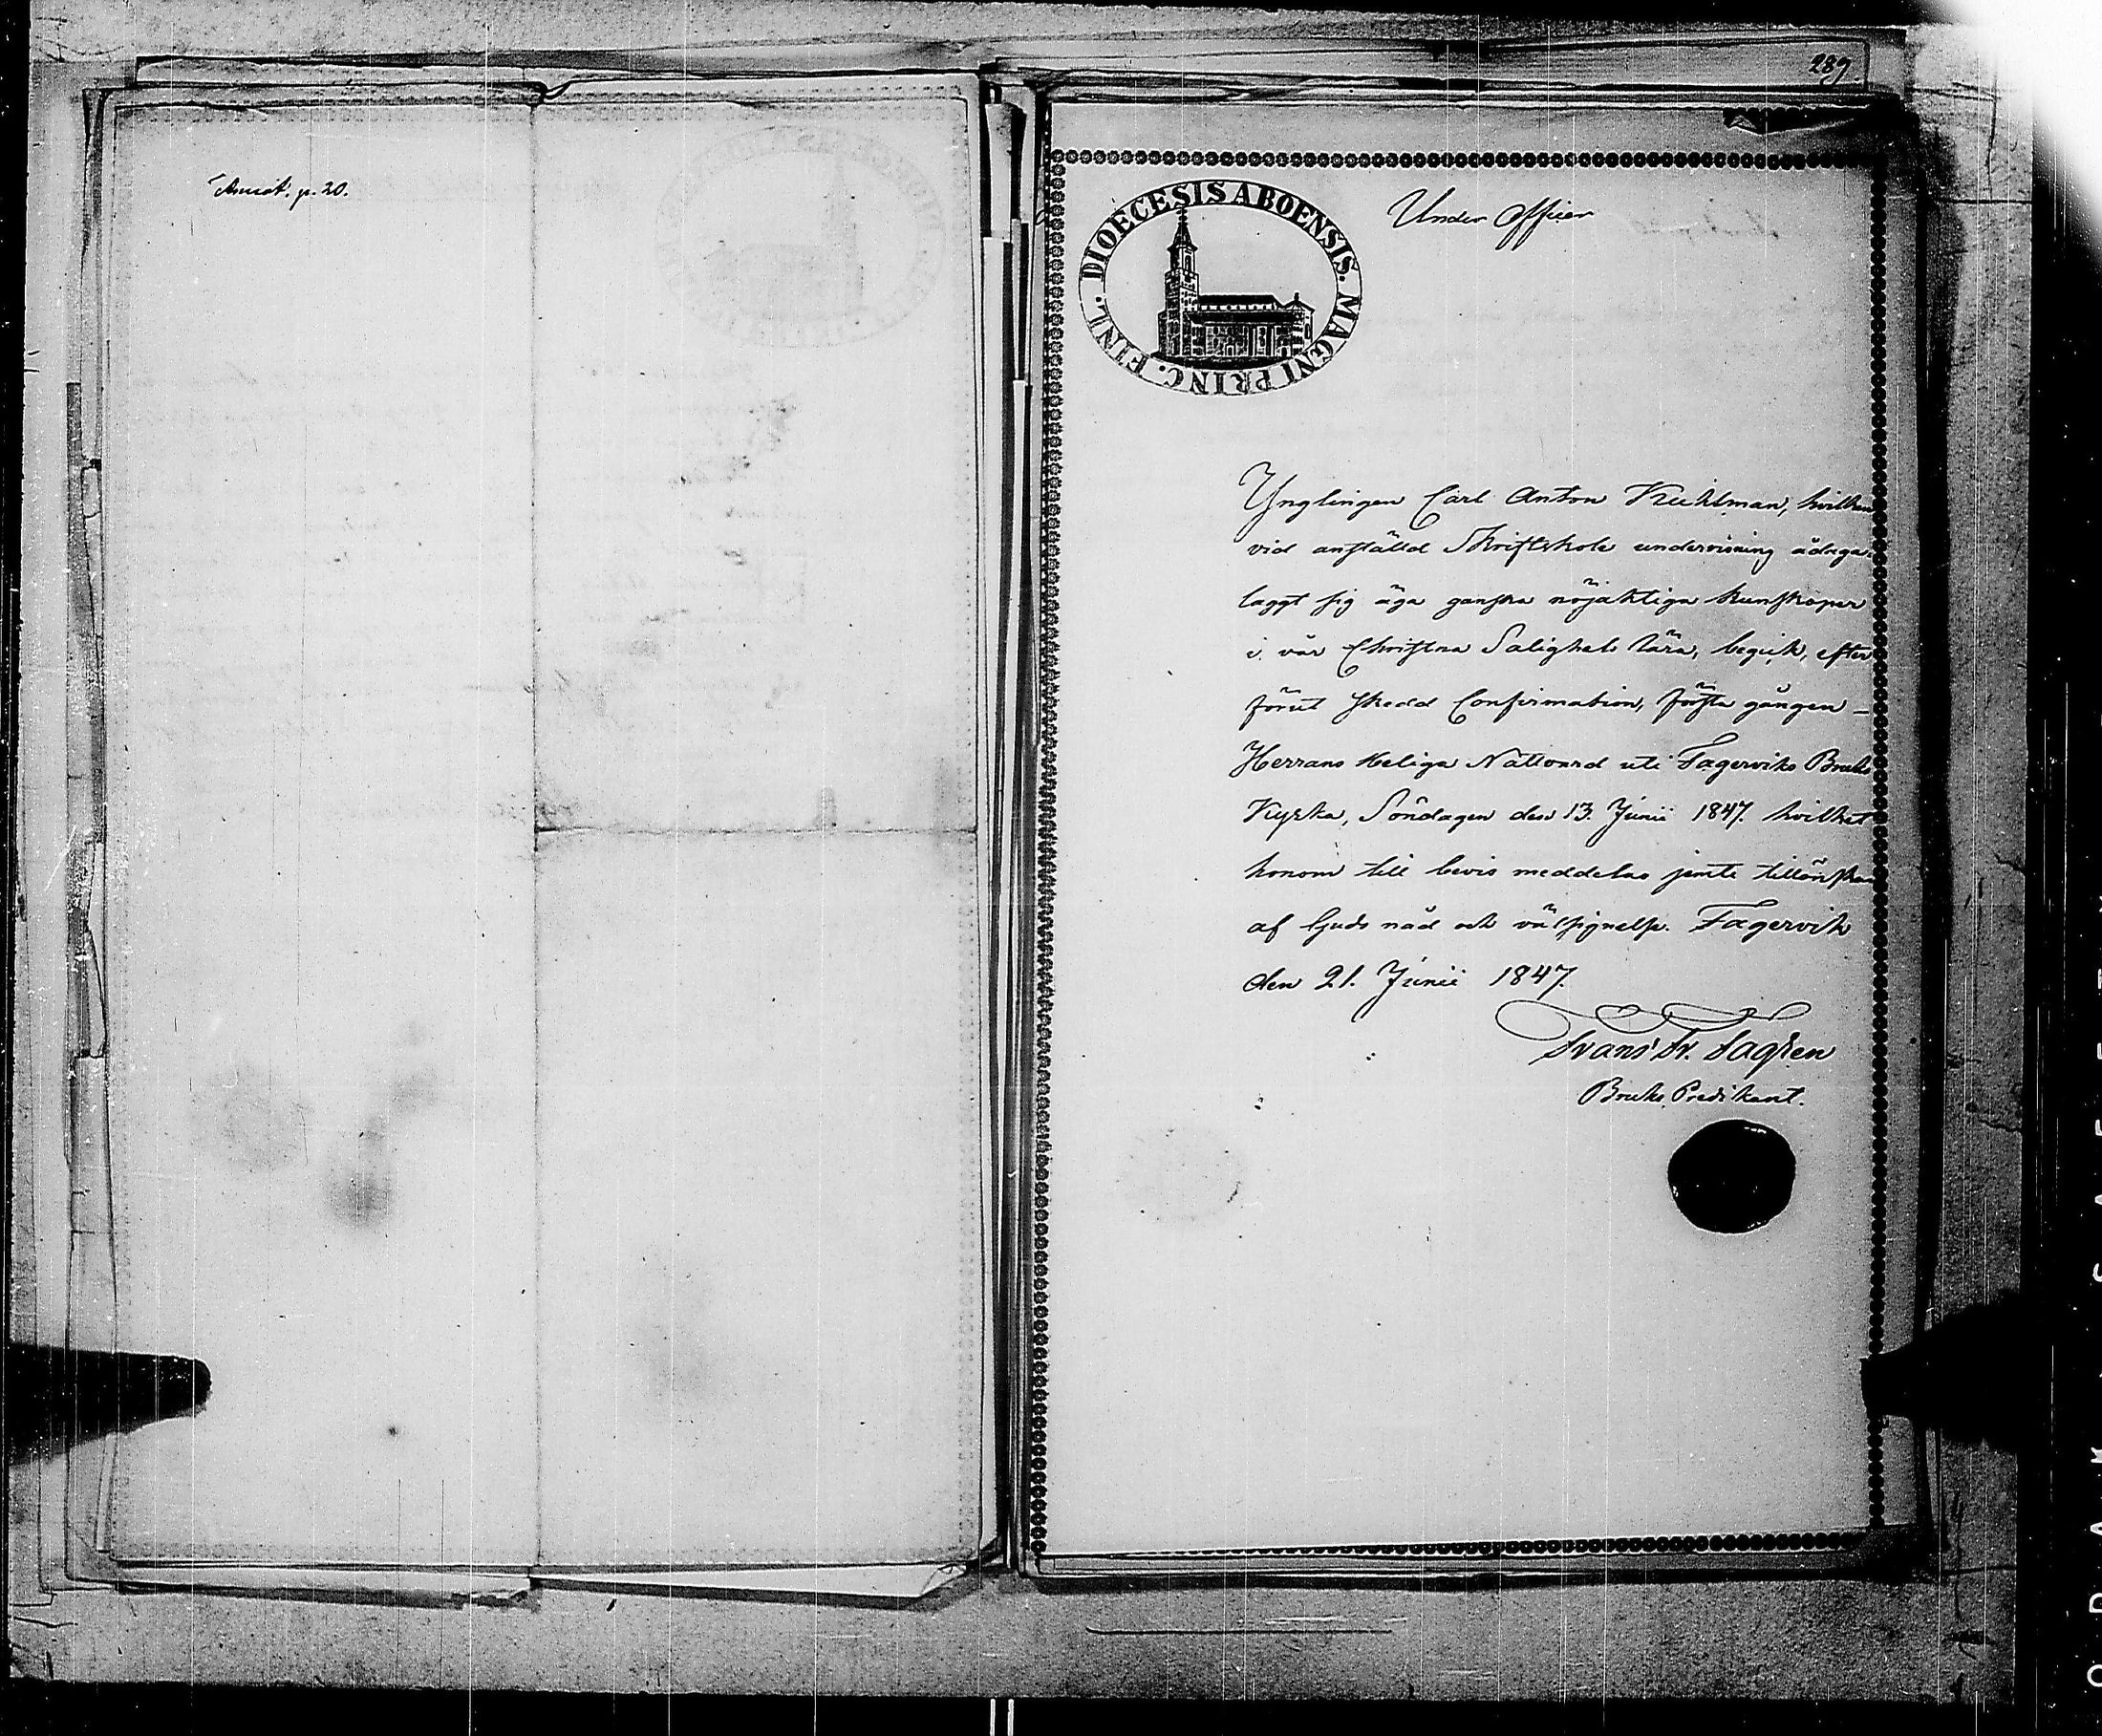 Annot. p. 20.
289.
DIOECESIS ABOENSIS. MAGNI PRINC. FINL.
Under Officer
Ynglingen Carl Anton Kuhlman, hvilken
vid anställd Skriftskole undervisning ådaga-
laggt sig äga ganska nöjaktiga kunskaper
i vår Christna Salighets lära, begick, efter
förut skedd Confirmation, första gången
Herrans Heliga Nattvard uti Fagerviks Bruks
Kyrka, Söndagen den 13. Junii 1847. hvilket
honom till bevis meddelas jemte tillönskan
af Guds nåd och välsignelse. Fagervik
den 21. Junii 1847.
Frans Fr.
Bruks Predikant.